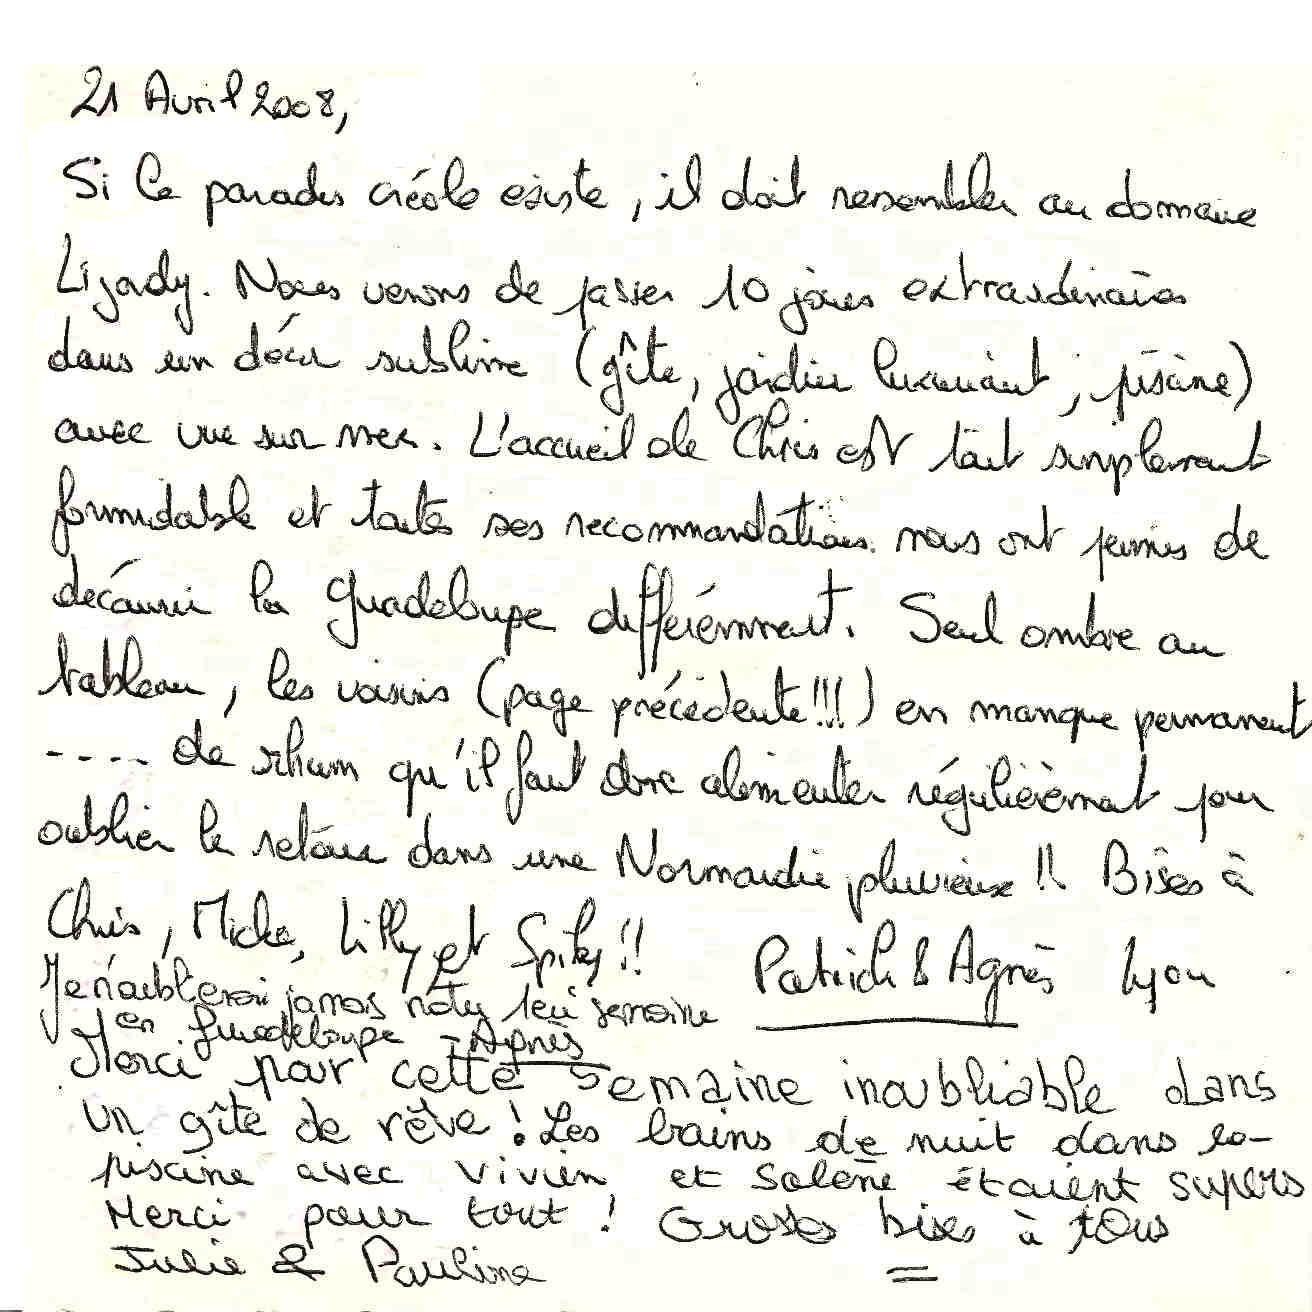 21 Avril 2008,
Si le paradis créole existe, il doit ressembler au domaine
Lizardy. Nous venons de passer 10 jours extraordinaires
dans un décor sublime (gîte, jardin luxuriant, piscine)
avec vue sur mer. L'accueil de Chris est tout simplement
formidable et toutes ses recommandations nous ont permis de
découvrir la Guadeloupe différemment. Seul ombre au
tableau, les voisins (page précédente!!!) en manque permanent
---- de rhum qu'il faut donc alimenter régulièrement pour
oublier le retour dans une Normandie pluvieuse !! Bises à
Chris, Micka, Lilly et Spiky!!
Patrick & Agnès Lyon
Je n'oublierai jamais notre 1ère semaine
en Guadeloupe - Agnès
Merci par cette semaine inoubliable dans
un gîte de rêve ! Les bains de nuit dans la
piscine avec Vivien et Solène étaient supers
Merci pour tout ! Grosses bises à tous
Julie & Pauline